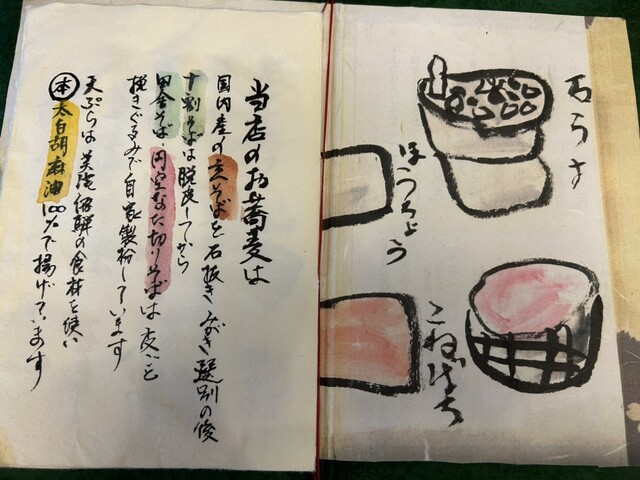 当店のお蕎麦は
国内産の玄そばを石抜きみがき選別の後
十割そばは脱皮してから
田舎そば・円空なた切りそばは皮ごと
挽きぐるみで自家製粉しています
天ぷらは 新鮮の食材を使い
本太白胡麻油100%で揚げています
石うす
ほうちょう
こねばち